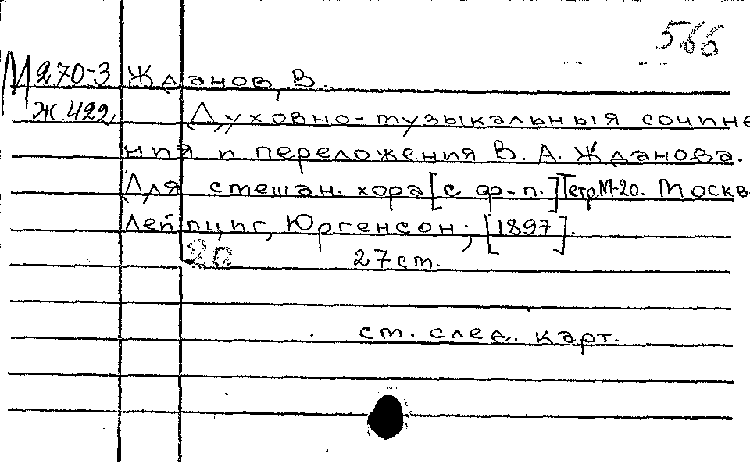 566
М 270-3 Жданов, В.
Ж 422 Духовно-музыкальныя сочине
ния и переложения В. А. Жданова.
Для смешан. хора [с ф-п.] Тетр. № 1-20. Москв
Лейпциг, Юргенсон; [1897].
20 27 cm.
см. след. карт.